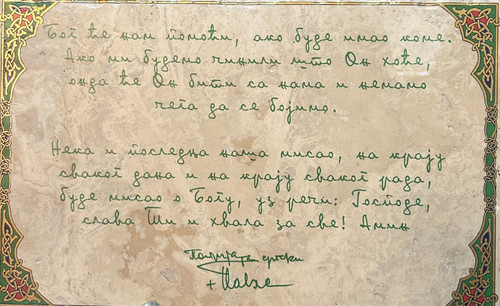 Бог ће нам помоћи, ако буде имао коме.
Ако ми будемо чинили што Он хоће,
онда ће Он бити са нама и немамо
чега да се бојимо.
Нека и последња наша мисао, на крају
сваког дана и на крају сваког рада,
буде мисао о Богу, уз речи: Господе,
слава Ти и хвала за све! Амин
Патријарх српски
+ Павле